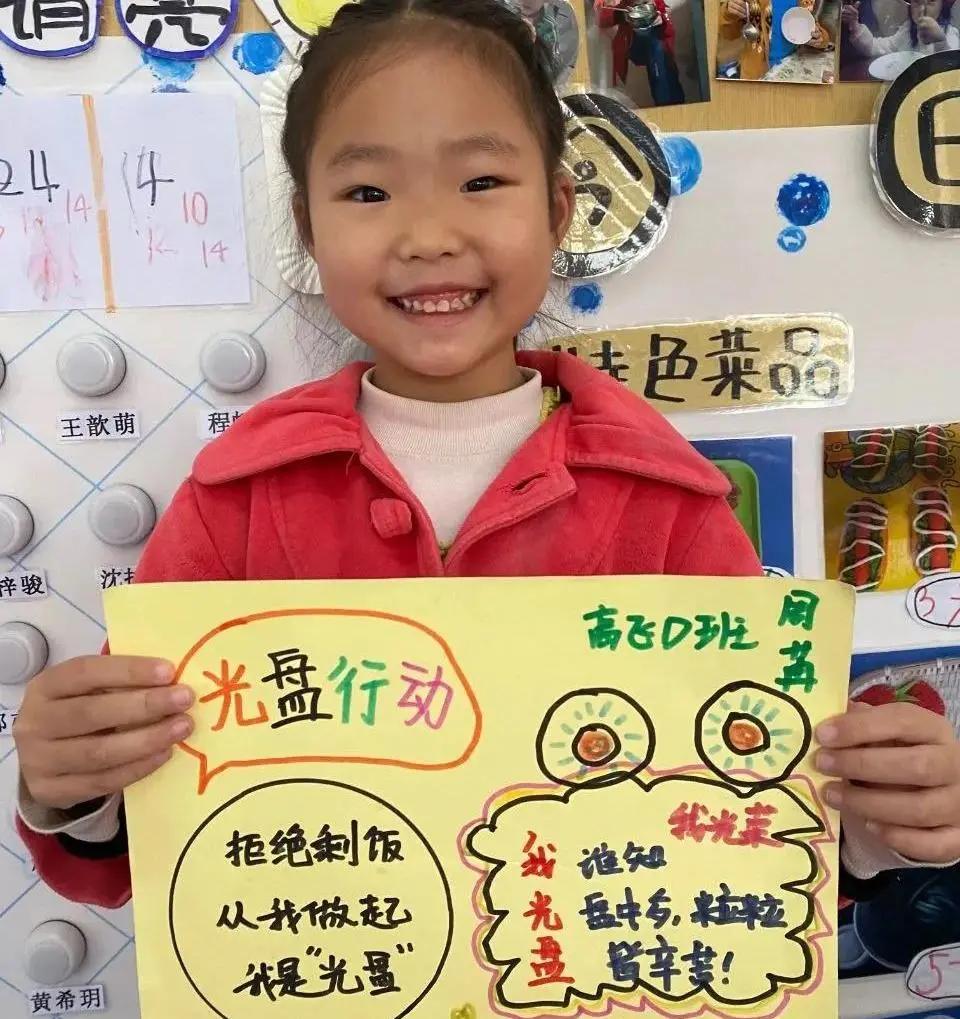 亮
24
14
14
10
14
日
特色菜品
王歆萌
程
梓骏
沈
黄希玥
高飞D班
周苒
光盘行动
拒绝剩饭
从我做起
我是"光盘"
我光荣
我光盘
谁知
盘中歺，粒粒
皆辛苦！